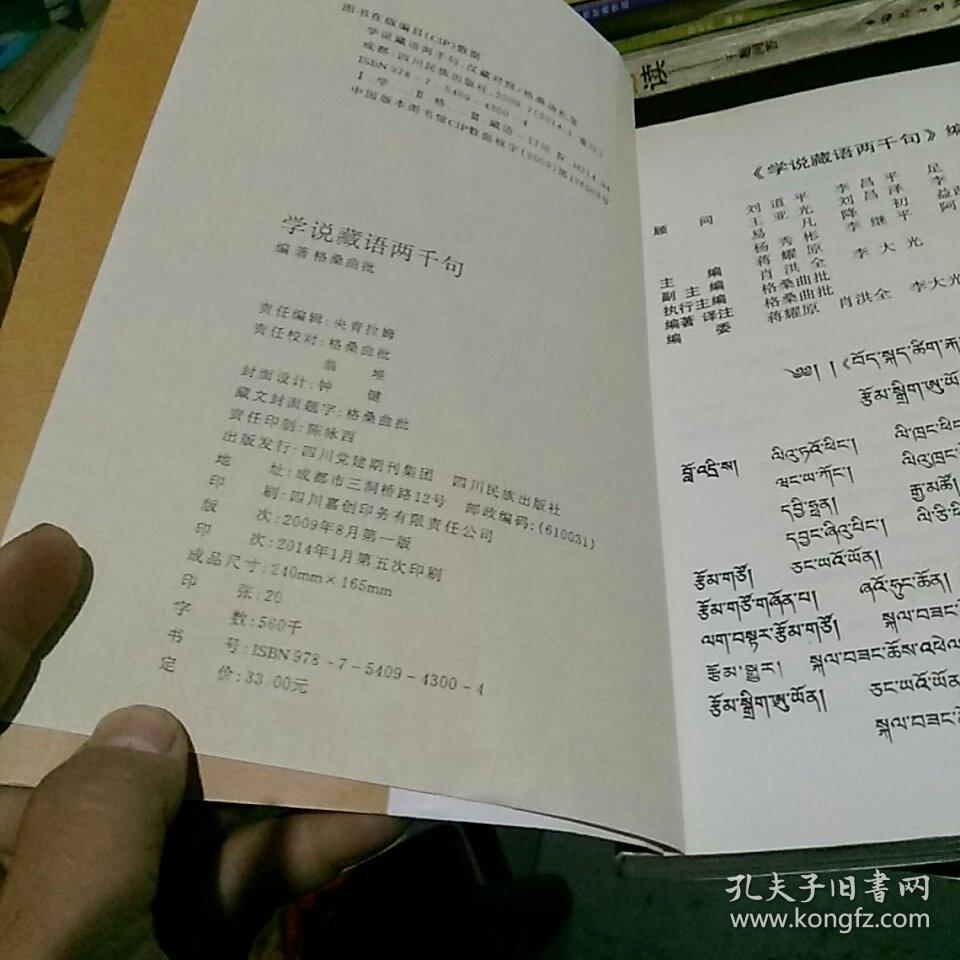 图书在版编目(CIP)数据
学说藏语两千句:汉藏对照/格桑曲批著
成都:四川民族出版社,2009.7(2014.1重印)
ISBN 978-7-5409-4300-4
Ⅰ.学… Ⅱ.格… Ⅲ.藏语-口语 Ⅳ.H214.94
中国版本图书馆CIP数据核字(2009)第
学说藏语两千句
编著 格桑曲批
责任编辑:央青拉姆
责任校对:格桑曲批
翁堆
封面设计:钟健
藏文封面题字:格桑曲批
责任印制:陈咏西
出版发行:四川党建期刊集团 四川民族出版社
地址:成都市三洞桥路12号 邮政编码:(610031)
印刷:四川嘉创印务有限责任公司
版次:2009年8月第一版
印次:2014年1月第五次印刷
成品尺寸:240mm×165mm
印张:20
字数:560千
书号:ISBN 978-7-5409-4300-4
定价:33.00元
读
《学说藏语两千句》编
顾问 刘道平 李昌平 足
王亚光 刘昌泽 李
易凡 降初 益西
杨秀彬 李继平 阿
主编 蒋耀原
副主编 肖洪全 李大光
执行主编 格桑曲批
编著 译注 格桑曲批
编委 蒋耀原 肖洪全 李大光
༄༅། །《བོད་སྐད་ཚིག་
རྩོམ་སྒྲིག་ཨུ་ཡོན་
བློ་འདྲི་ས། ལིའུ་ཏའོ་ཕིང་། ལི་ཁྲང་ཕིང་
ཝང་ཡ་ཀོང་། ལིའུ་ཁྲང་
དབྱི་ཧྥན། རྒྱ་མཚོ།
དབྱང་ཞིའུ་པིང་། ལི་ཅི་ཕིང་
རྩོམ་གཙོ། ཅང་ཡའོ་ཡོན།
རྩོམ་གཙོ་གཞོན་པ། ཞའོ་ཧུང་ཆོན།
ལག་བསྟར་རྩོམ་གཙོ། སྐལ་བཟང་
རྩོམ་སྒྱུར། སྐལ་བཟང་ཆོས་འཕེལ
རྩོམ་སྒྲིག་ཨུ་ཡོན། ཅང་ཡའོ་ཡོན
སྐལ་བཟང་
孔夫子旧书网
www.kongfz.com